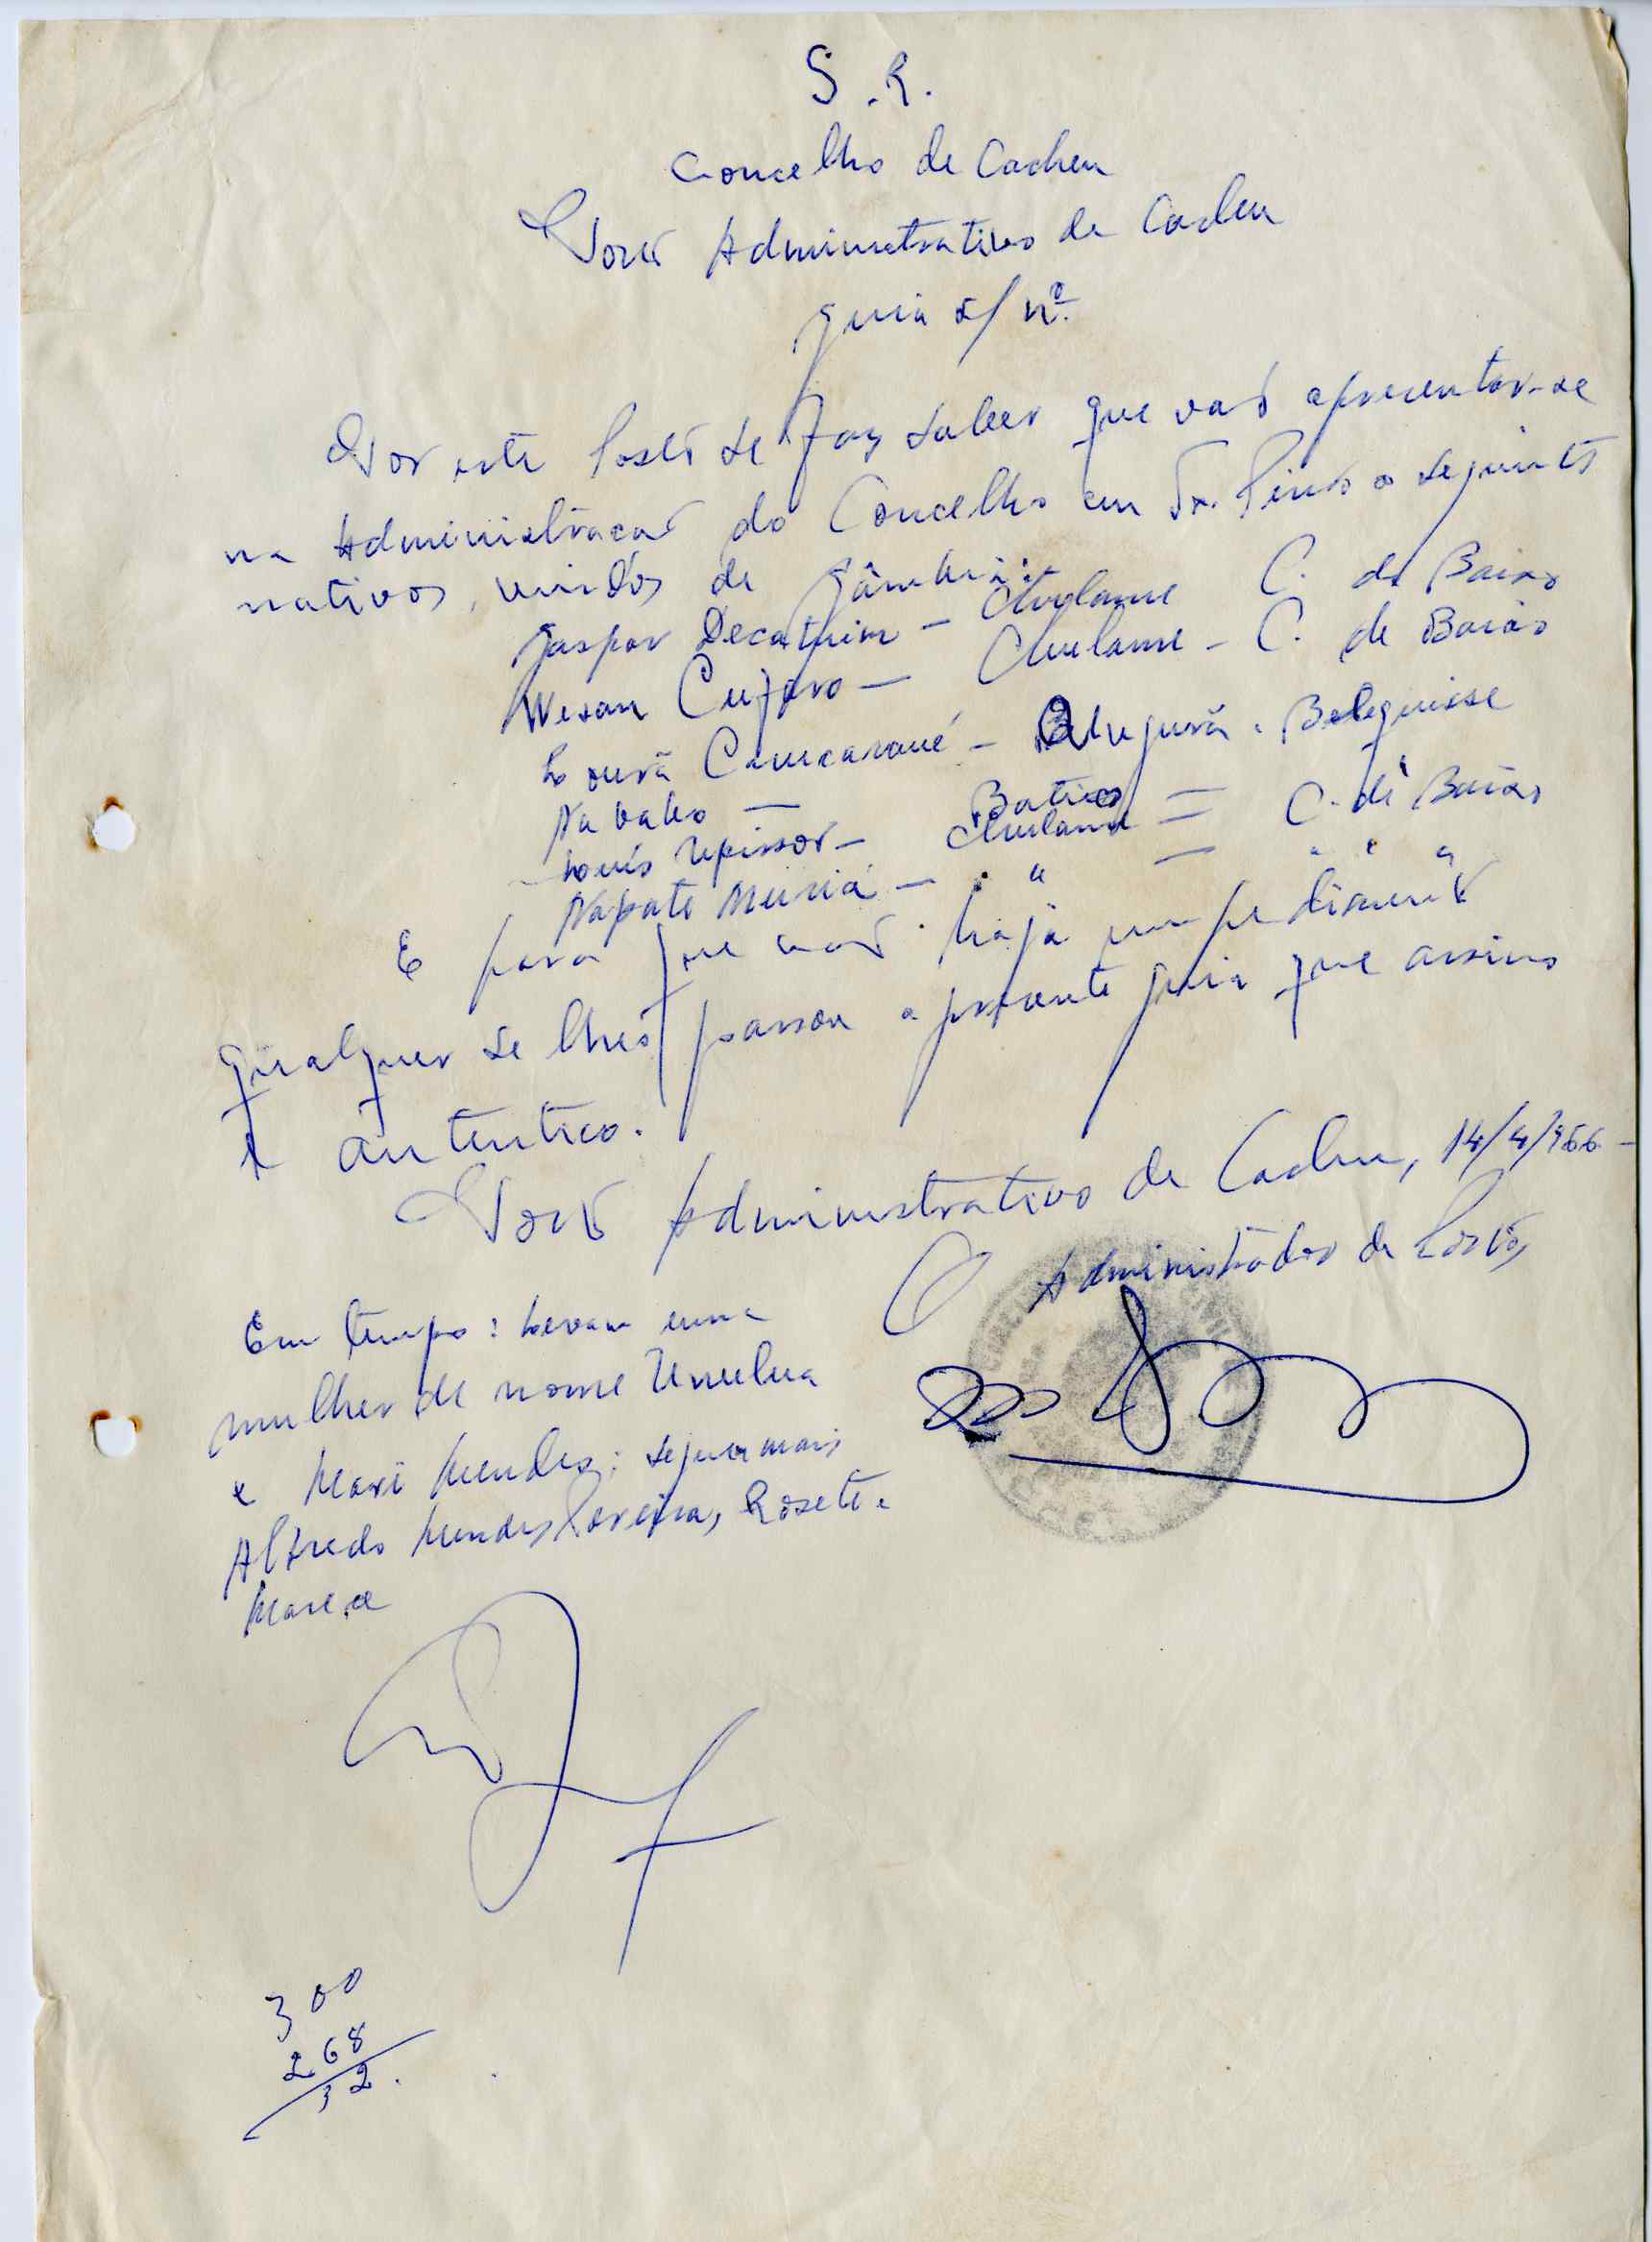 S.R.
Concelho de Cacheu
Posto Administrativo de Cacheu
Guia s/ nº.
Por este Posto se faz saber que vão apresentar-se
na Administração do Concelho em Tx. Pinto os seguintes
nativos, vindos de Gâmbia:
Gaspar Decatpim - Churlame C. de Baixo
Wesan - Churlame - C. de Baixo
- Beleguisse
Na - Batico =
Luís Upissor - Churlame = C. de Baixo
Napate - " - " " "
E para que não haja impedimento
qualquer se lhes passou a presente guia que assino
e autentico.
Posto Administrativo de Cacheu, 14/4/966 -
O Administrador de Posto,
Em tempo: Levam uma
mulher de nome
e Mendes; seguem mais
Alfredo Mendes Pereira, Rosete e
300
268
32.